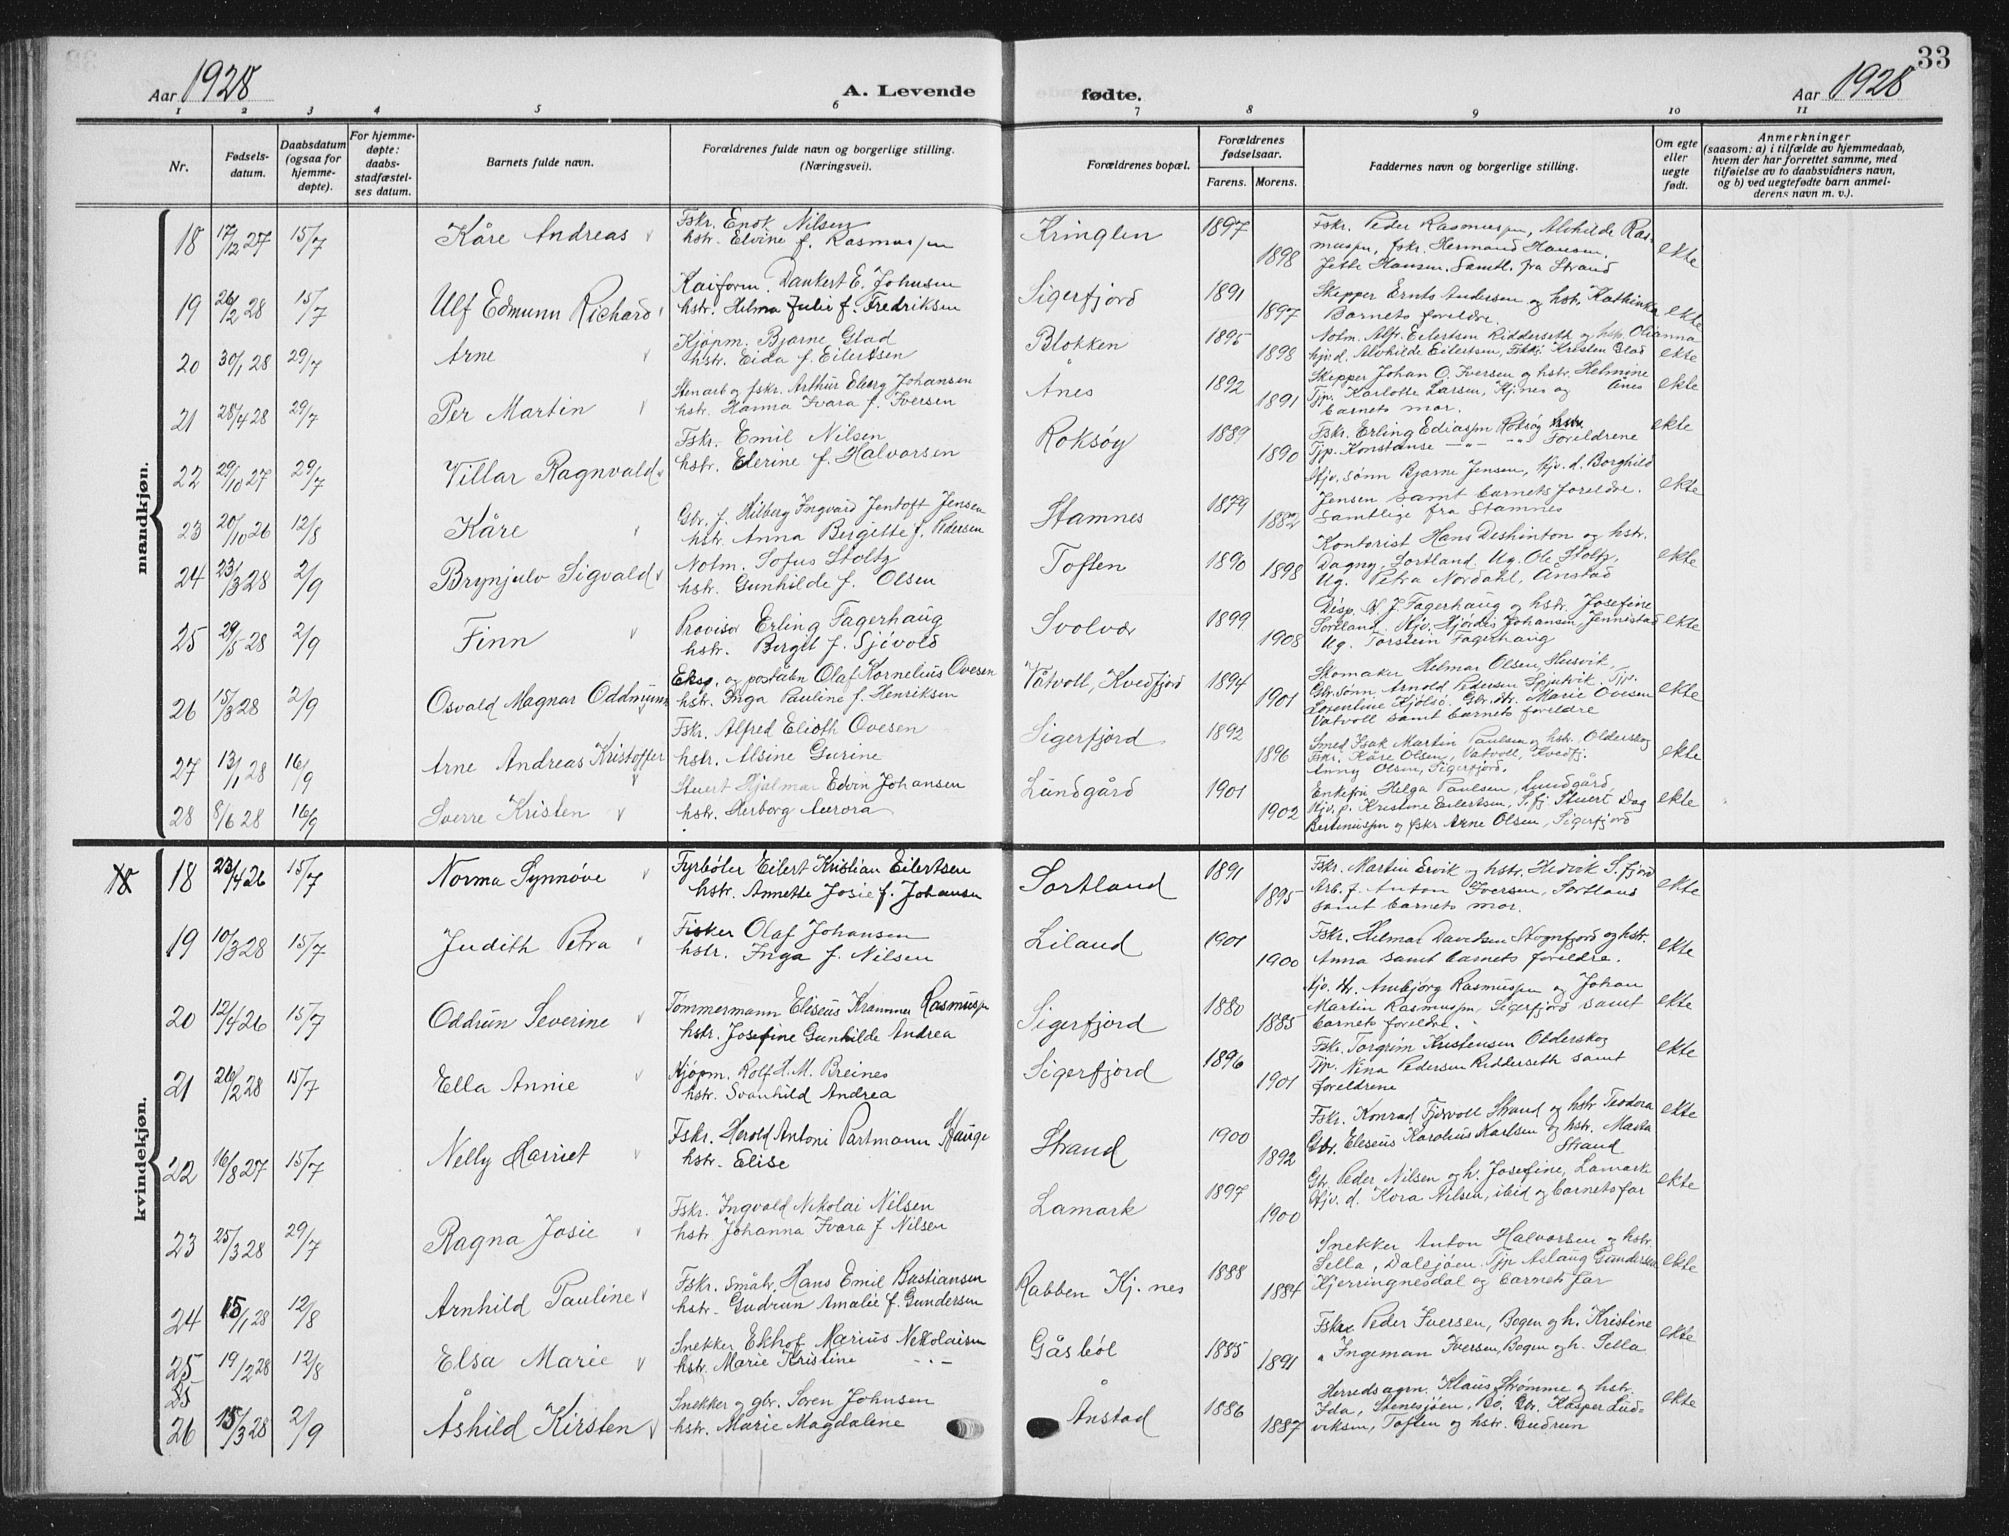 33
Aar 1928
A. Levende fødte.
Aar 1928
1 2 3 4 5 6 7 8 9 10 11
Nr.
Fødsels-
datum.
Daabsdatum
(ogsaa for
hjemme-
døpte).
For hjemme-
døpte:
daabs-
stadfæstel-
ses datum.
Barnets fulde navn.
Forældrenes fulde navn og borgerlige stilling.
(Næringsvei).
Forældrenes bopæl.
Forældrenes
fødselsaar.
Farens. Morens.
Faddernes navn og borgerlige stilling.
Om egte
eller
uegte
født.
Anmerkninger
(saasom: a) i tilfælde av hjemmedaab,
hvem der har forrettet samme, med
tilføielse av to daabsvidners navn,
og b) ved uegtefødte barn anmel-
derens navn m. v.).
mandkjøn.
18 17/12 27 15/7 Kåre Andreas
Fskr. Enok Nilsen
hstr. Elvine f. Rasmussen
Kringlen 1897 1898
Fskr. Peder Rasmussen, Alvhilde Ras-
mussen, fskr. Hermand Hansen,
Jette Hansen. Samtl. fra Strand
ekte
19 26/2 28 15/7 Ulf Edmunn Richard
Kaiform. Dankert E. Johnsen
hstr. Helma Julie f. Fredriksen
Sigerfjord 1891 1897
Skipper Ernts Andersen og hstr. Kathinka
Barnets foreldre.
ekte
20 30/1 28 29/7 Arne
Kjøpm. Bjarne Glad
hstr. Eida f. Eilertsen
Blokken 1895 1898
Notm. Alfr. Eilertsen Ridderseth og hstr. Olianna
hjv d. Alvhilde Eilertsen, Fskr. Kristen Glad
ekte
21 28/4 28 29/7 Per Martin
Stenarb og fskr. Arthur Eberg Johansen
hstr. Hanna Ivara f. Iversen
Ånes 1892 1891
Skipper Johan O. Iversen og hstr. Helmine
Tjp. Karlotte Larsen, Kj.nes og Ånes
barnets mor.
ekte
22 29/10 27 29/7 Villar Ragnvald
Fskr. Emil Nilsen
hstr. Elerine f. Halvorsen
Roksøy 1889 1890
Fskr. Erling Ediassen Roksøy
Tjp. Konstanse —"— "— Foreldrene
ekte
23 20/10 26 12/8 Kåre
Gbr. f. Hilberg Ingvard Jentoft Jensen
hstr. Anna Birgitte f. Pedersen
Stamnes 1879 1882
Hjv. sønn Bjarne Jensen, Hjv. d. Borghild
Jensen samt barnets foreldre.
Samtlige fra Stamnes
ekte
24 23/3 28 2/9 Brynjulv Sigvald
Notm. Sofus Stoltz
hstr. Gunhilde f. Olsen
Toften 1890 1898
Kontorist Hans Deshinton og hstr.
Dagny, Sortland. Ug. Ole Stoltz,
Ug. Petra Nordahl, Ånstad
ekte
25 29/5 28 2/9 Finn
Provisor Erling Fagerhaug
hstr. Bergit f. Sjövold
Svolvær 1899 1908
Disp. N. J. Fagerhaug og hstr. Josefine
Sortland. Hjv. Hjördis Johansen, Jennistad
Ug. Torstein Fagerhaug
ekte
26 15/3 28 2/9 Osvald Magnar Oddmunn
Eksp. og poståbn Olaf Kornelius Ovesen
hstr. Inga Pauline f. Henriksen
Våtvoll, Kvedfjord 1894 1901
Skomaker Hilmar Olsen, Husvik,
Gbr.sønn. Arnold Pedersen Spjutvik. Tjv.
Lorentine Kjölsö. Gbr.dtr. Marie Ovesen
Vatvoll samt barnets foreldre
ekte
27 13/1 28 16/9 Arne Andreas Kristoffer
Fskr. Alfred Elioth Ovesen
hstr. Alsine Gurine
Sigerfjord 1892 1896
Smed Isak Martin Paulsen og hstr. Olderskog
Fskr. Kåre Olsen, Vatvoll, Kvedfj.
Anny Olsen, Sigerfjord.
ekte
28 8/6 28 16/9 Sverre Kristen
Stuert Hjalmar Edvin Johansen
hstr. Herborg Aurora
Lundgård 1901 1902
Enkefru Helga Paulsen, Lundgård,
Hjv. p. Kristine Eilertsen, S.fj. Stuert Dag
Bertinussen og fskr Arne Olsen, Sigerfjord
ekte
kvindekjøn.
18 18 23/4 26 15/7 Norma Synnøve
Fyrbøter Eilert Kristian Eilertsen
hstr. Annette Josie f. Johansen
Sortland 1891 1895
Fskr. Martin Ervik og hstr. Hedvik S.fjord
Arb. f. Anton Iversen, Sortland
samt barnets mor.
ekte
19 10/3 28 15/7 Judith Petra
Fisker Olaf Johansen
hstr. Inga f. Nilsen
Liland 1901 1900
Fskr. Hilmar Davidsen Stognfjord og hstr.
Anna samt barnets foreldre.
ekte
20 12/4 26 15/7 Oddrun Severine
Tömmermann Eliseus Krammer Rasmussen
hstr. Josefine Gunhilde Andrea
Sigerfjord 1880 1885
Hjv. dtr. Ambjörg Rasmussen og Johan
Martin Rasmussen, Sigerfjord samt
barnets foreldre.
ekte
21 26/2 28 15/7 Ella Annie
Kjöpm. Rolf H. M. Breines
hstr. Svanhild Andrea
Sigerfjord 1896 1901
Fskr. Torgrim Kristensen Olderskog
Tjp. Nina Pedersen Ridderseth samt
foreldrene
ekte
22 16/8 27 15/7 Nelly Harriet
Fskr. Herold Antoni Partmann Hauge
hstr. Elise
Strand 1900 1892
Fskr. Konrad Tjervoll Strand og hstr Teodora
Gbr. Eleseus Karolius Karlsen og hstr. Marta
Strand
ekte
23 25/3 28 29/7 Ragna Josie
Fskr. Ingvald Nikolai Nilsen
hstr. Johanna Ivara f. Nilsen
Lamark 1897 1900
Gbr. Peder Nilsen og h. Josefine, Lamark
Hjv. d. Kora Nilsen, ibid og barnets far
ekte
24 15/1 28 12/8 Arnhild Pauline
Fskr. småbr. Hans Emil Bastiansen
hstr. Gudrun Amalie f. Gundersen
Rabben Kj.nes 1888 1884
Snekker Anton Halvorsen og hstr.
Sella, Dalsjöen. Tjp Aslaug Gundersen
Kjerringnesdal og barnets far
ekte
25 19/2 28 12/8 Elsa Marie
Snekker Ekhof Marius Nikolaisen
hstr. Marie Kristine —"—
Gåsböl 1885 1891
Fskr Peder Iversen, Bogen og h. Kristine
" Ingeman Iversen, Bogen og h. Sella
ekte
25
26 15/3 28 2/9 Åshild Kirsten
Snekker og gbr. Soren Johnsen
hstr. Marie Magdalene
Ånstad 1886 1887
Herredsagrn. Klaus Strømme og hstr.
Ida, Stenesjöen, Bö. Gbr. Kasper Lud-
viksen, Toften og hstr. Gudrun
ekte